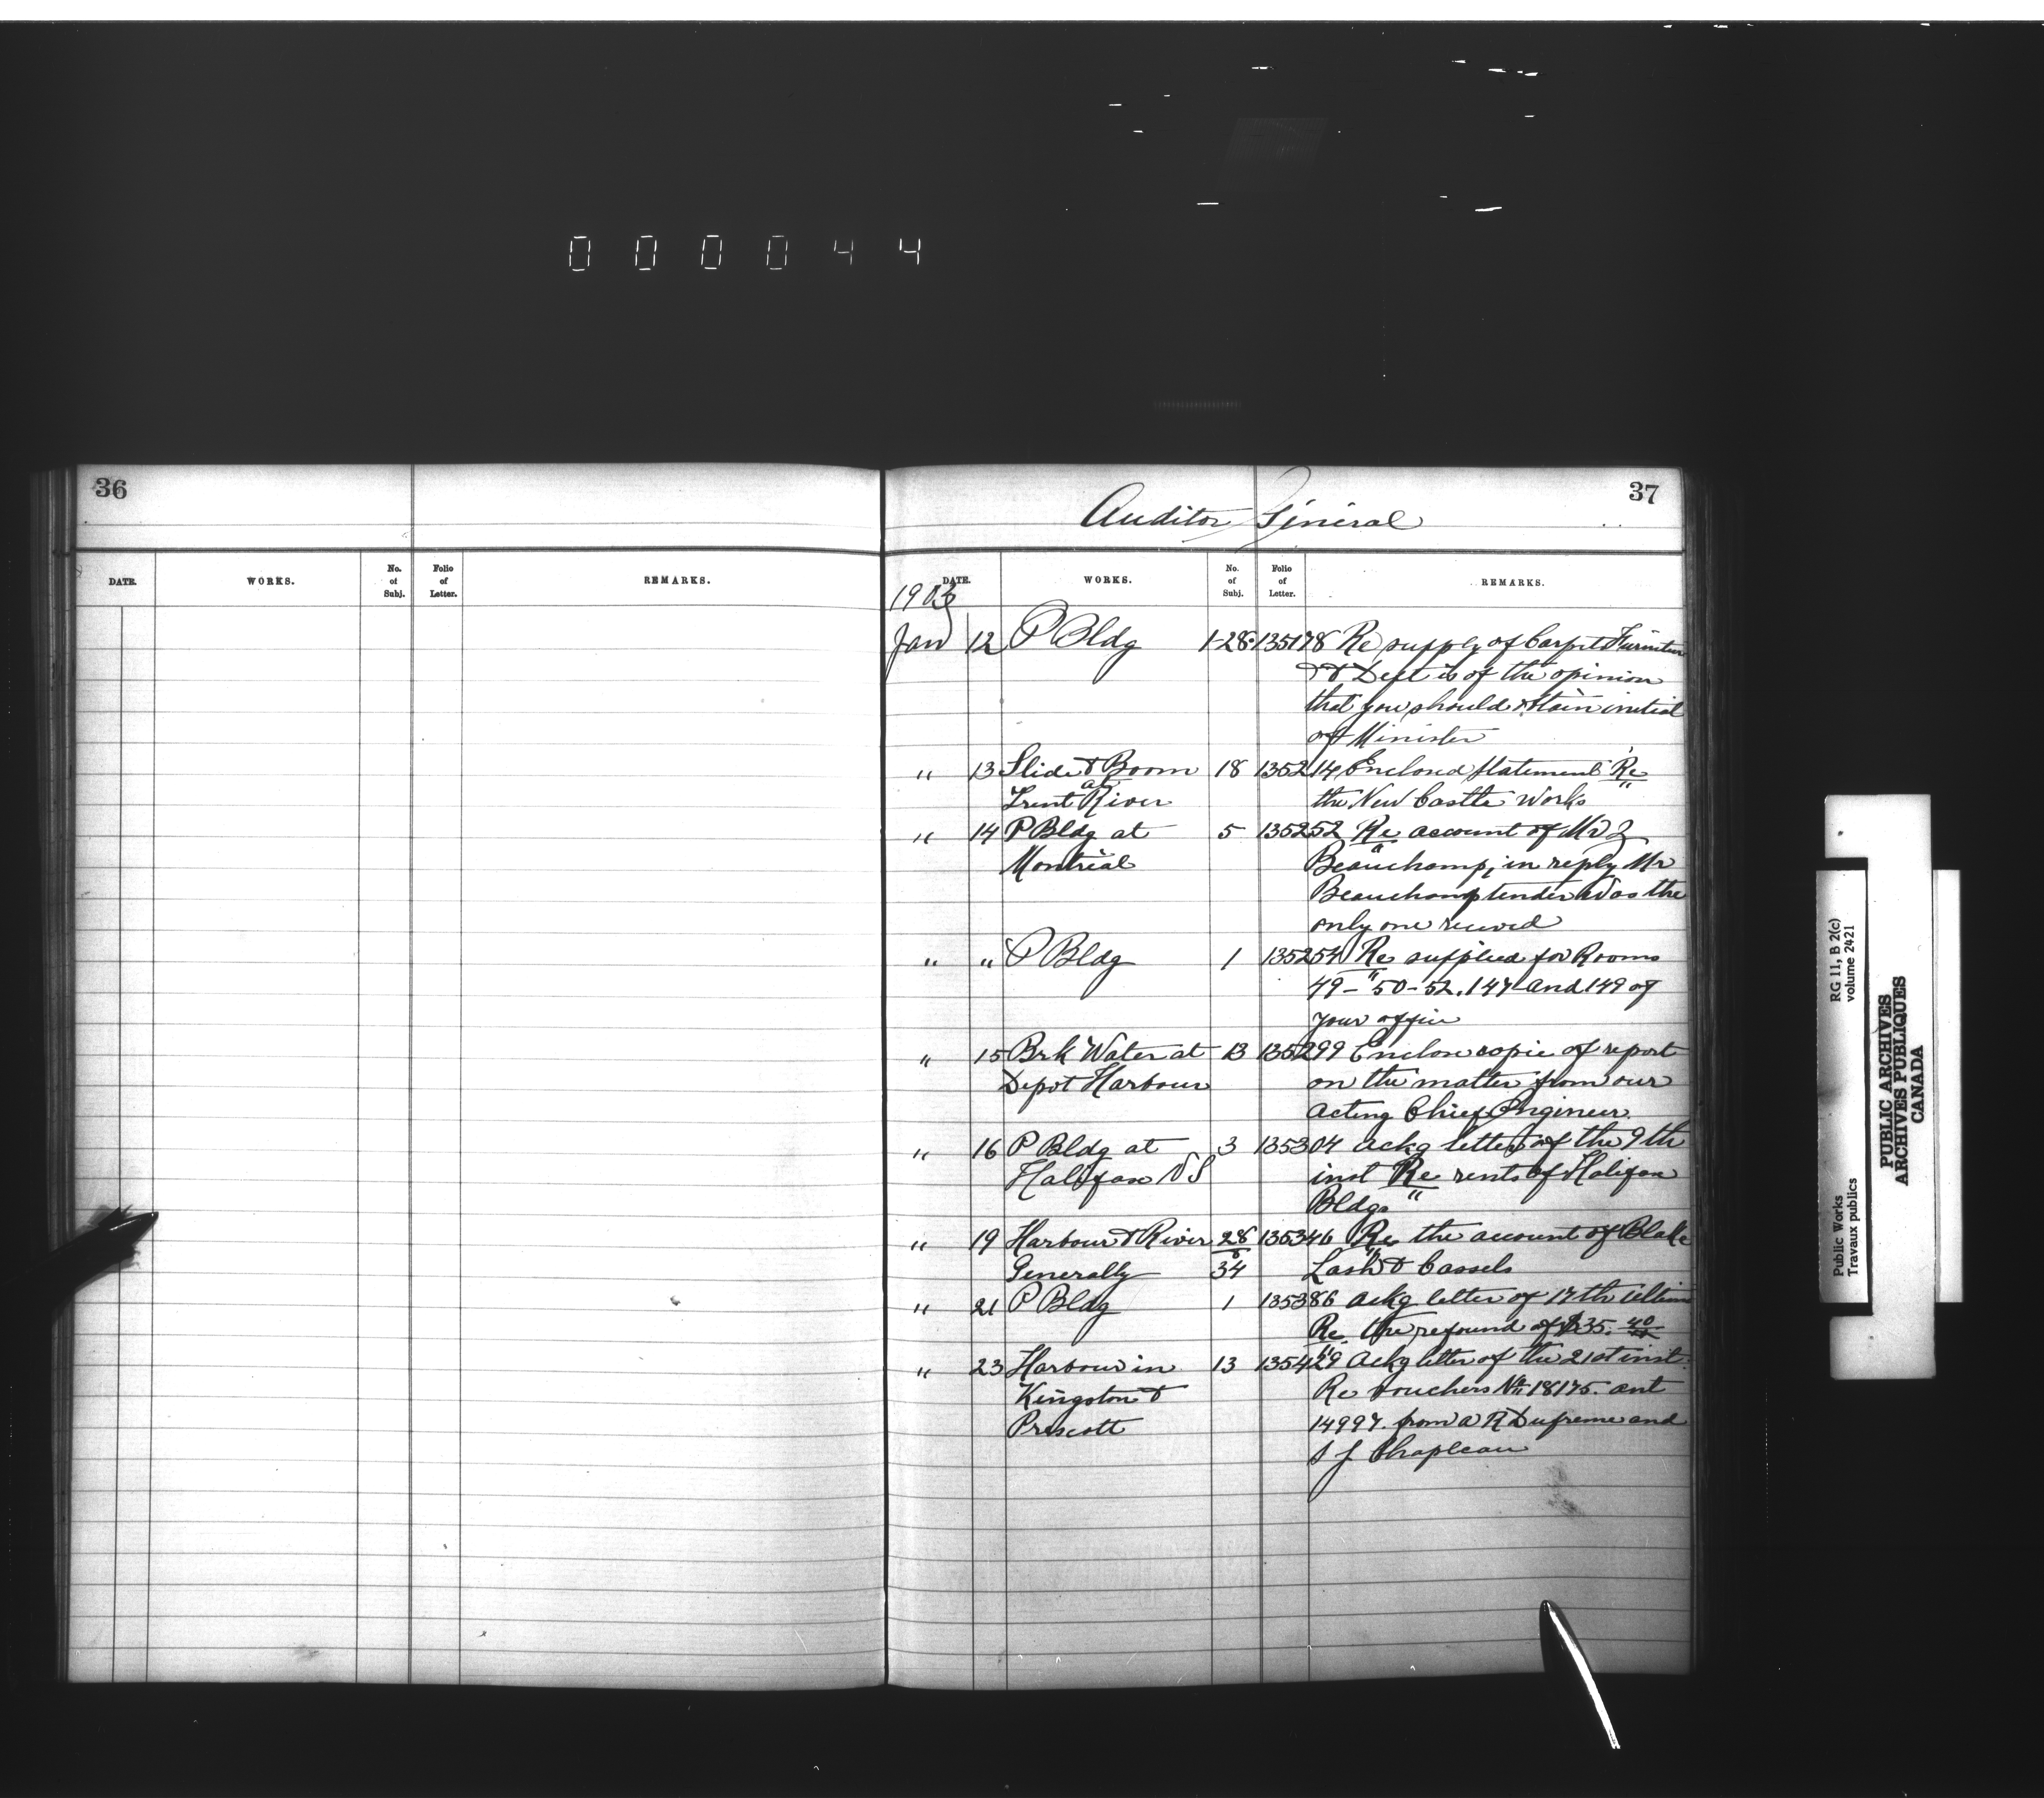 0 0 0 0 4 4
36
DATE. WORKS. No. of Subj. Folio of Letter. REMARKS.
37
Auditor General
DATE. WORKS. No. of Subj. Folio of Letter. REMARKS.
1903
Jan 12 P Bldg 1-28. 135178 Re supply of Carpet Furniture
&c Dept is of the opinion
that you should obtain initial
of Minister
" 13 Slide & Boom 18 135214 Enclosed statement Re
at
Trent River the New Castle Works
" 14 P Bldg at 5 135252 Re account of Mr Z
Montreal Beauchamp, in reply Mr
Beauchamp tender was the
only one received
" " P Bldg 1 135254 Re supplied for Rooms
49-50-52. 147 and 149 of
your office
" 15 Brk Water at 13 135299 Enclose copie of report
Depot Harbour on the matter from our
acting Chief Engineer
" 16 P Bldg at 3 135304 ackg letter of the 9th
Halifax N S inst Re rents of Halifax
Bldgs
" 19 Harbour & River 28 135346 Re the account of Blake
Generally 34 Lash & Cassels
" 21 P Bldg 1 135386 ackg letter of 17th ultimo
Re the refound of $35.40
" 23 Harbour in 13 135429 Ackg letter of the 21st inst.
Kingston & Re vouchers No 18175. ant
Prescott 14997. from a R Dufreme and
S J Chapleau
Public Works RG 11, B 2(c)
Travaux publics volume 2421
PUBLIC ARCHIVES
ARCHIVES PUBLIQUES
CANADA